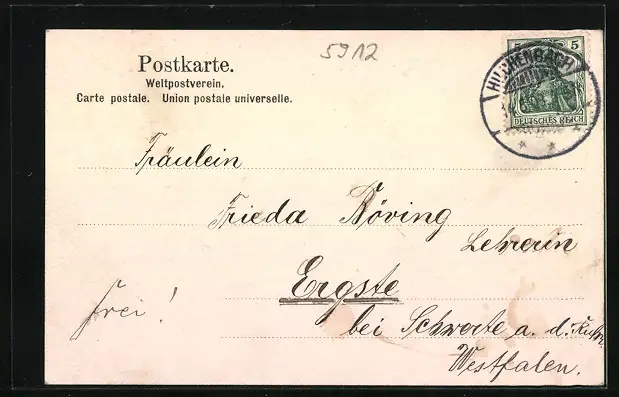 5912
Postkarte.
Weltpostverein.
Carte postale. Union postale universelle.
5 5
HILCHENBACH
DEUTSCHES REICH
Fräulein
Frieda Röving
Lehrerin
Ergste
frei!
bei Schwerte a. d. Ruhr
Westfalen.